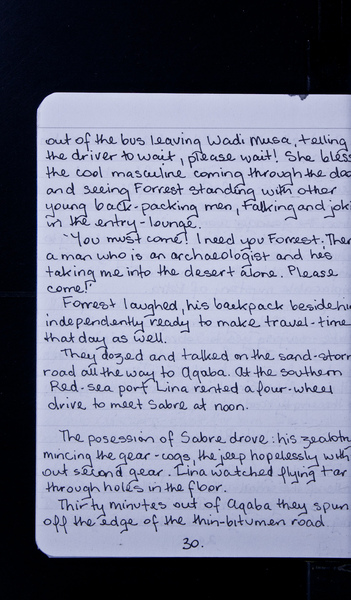 out of the bus leaving Wadi Musa, telling
the driver to wait, please wait! She bless
the cool masculine coming through the doo
and seeing Forrest standing with other
young back-packing men, talking and joki
in the entry-lounge.
"You must come! I need you Forrest. Ther
a man who is an archaeologist and hes
taking me into the desert alone. Please
come!"
Forrest laughed, his backpack beside hi
independently ready to make travel-time
that day as well.
They dozed and talked on the sand-storm
road all the way to Aqaba. At the southern
Red-sea port Lina rented a four-wheel
drive to meet Sabre at noon.
The posession of Sabre drove: his zealotr
mincing the gear-cogs, the jeep hopelessly with
out second gear. Lina watched flying tar
through holes in the floor.
Thirty minutes out of Aqaba they spun
off the edge of the thin-bitumen road.
30.